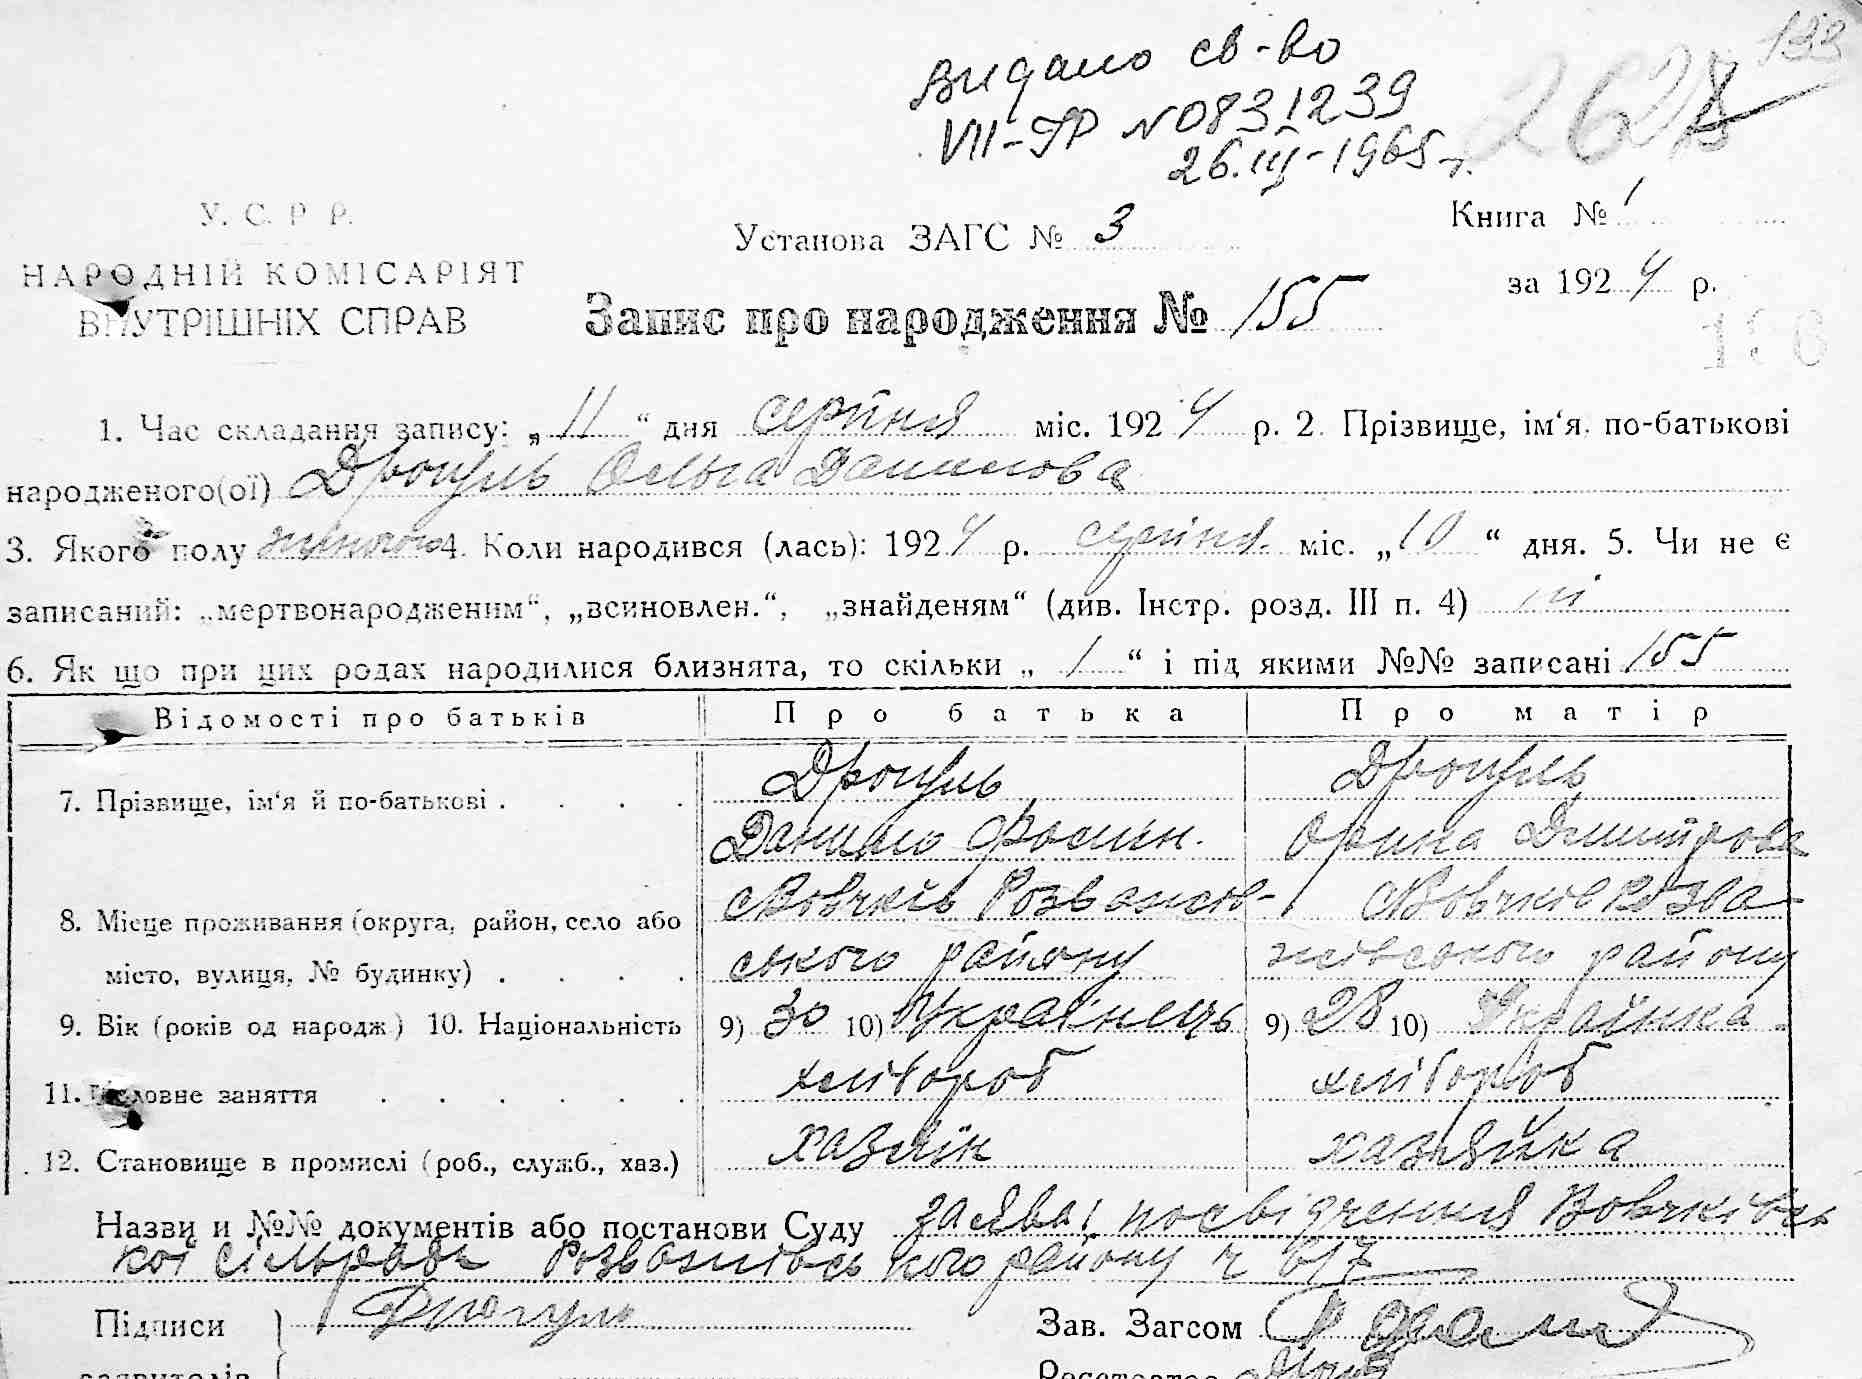 133
Видано св-во
262
VII-ГР №0831239
26.III-1965 г.
У. С. Р. Р.
Установа ЗАГС № 3
Книга № 1
НАРОДНІЙ КОМІСАРІЯТ
ВНУТРІШНІХ СПРАВ
за 1924 р.
Запис про народження № 155
1. Час складання запису: „11“ дня серпня міс. 1924 р. 2. Прізвище, ім‘я, по-батькові
народженого(ої) Дроцуль Ольга Данилова
3. Якого полу жіночого 4. Коли народився (лась): 1924 р. серпня міс. „10“ дня. 5. Чи не є
записаний: „мертвонародженим“, „всиновлен.“, „знайденям“ (див. Інстр. розд. III п. 4) ні
6. Як що при цих родах народилися близнята, то скільки „1“ і під якими №№ записані 155
Відомості про батьків Про батька Про матір
7. Прізвище, ім‘я й по-батькові . . . . Дроцуль Дроцуль
Данило Фомін. Орина Дмитрова
8. Місце проживання (округа, район, село або Вовчків Розважів- Вовчків Розва-
місто, вулиця, № будинку) . . . . ського району жівського району
9. Вік (років од народж) 10. Національність 9) 30 10) Українець 9) 28 10) Українка.
11. Головне заняття . . . . . . хлібороб хлібороб
12. Становище в промислі (роб., служб., хаз.) хазяїн хазяйка
Назви и №№ документів або постанови Суду заява і посвідчення Вовчківсь
кої сільради Розважівського району ч 617
Підписи Дроцуль Зав. Загсом
заявителів Реєстратор